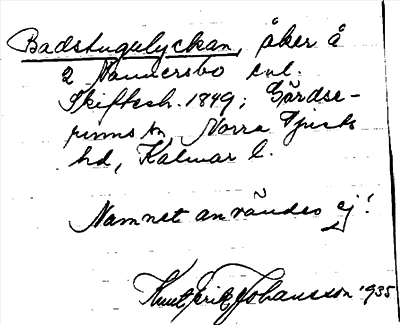 Badstugulyckan, åker å
2 Nannersbo enl.
Skiftesh. 1849; Gärdse-
rums sn, Norra Tjusts
hd, Kalmar l.
Namnet användes ej!
Knut Fritz Johansson 1935